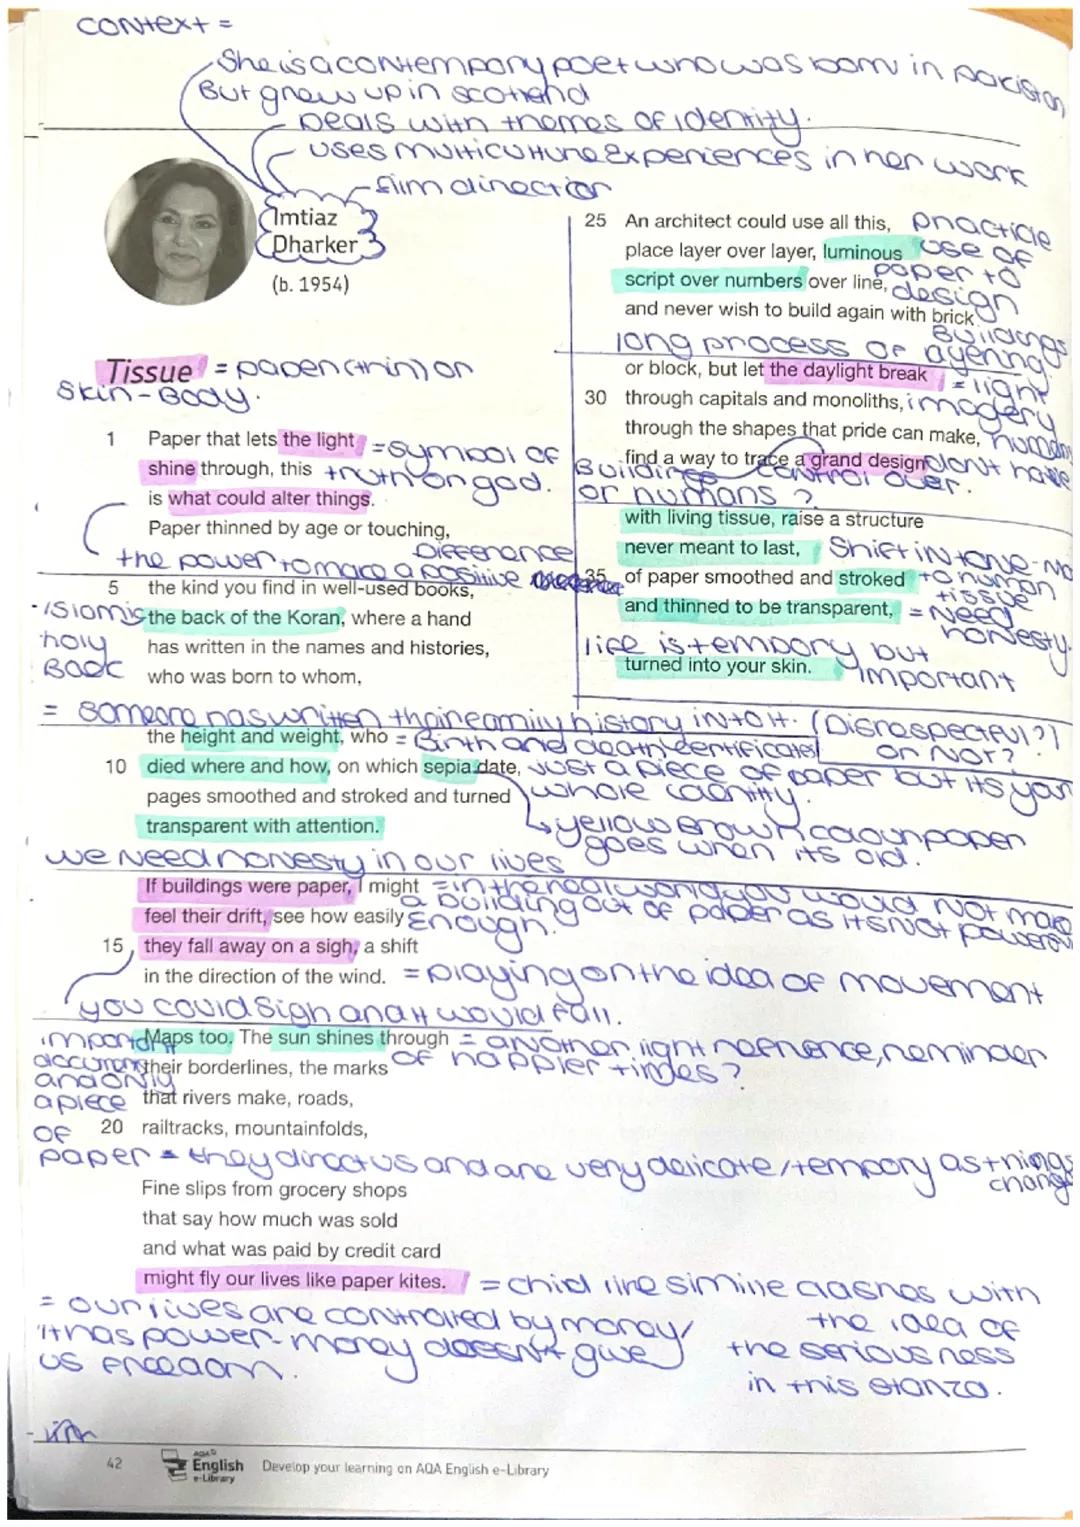 context =
She is a contempory poet who was born in pakistan,
But grew up in scotland
Deals with themes of identity.
uses multicultural experiences in her work
film direction
Imtiaz
Dharker
(b. 1954)
Tissue = paper (thin) or
skin-Body.
1 Paper that lets the light = symbol of
shine through, this truth or god.
is what could alter things.
Paper thinned by age or touching,
Difference
the power to make a positive
5 the kind you find in well-used books,
- Islamic the back of the Koran, where a hand
holy has written in the names and histories,
Book who was born to whom,
= someone has written their family history into it. (Disrespectful?)
or NOT?
the height and weight, who = Birth and death certificates
10 died where and how, on which sepia date, Just a piece of paper but its your
pages smoothed and stroked and turned whole identity.
transparent with attention. yellow brown colour paper
goes when its old.
we need honesty in our lives
If buildings were paper, I might = in the real world you would not make
a building out of paper as its not powerful
feel their drift, see how easily Enough.
15 they fall away on a sigh, a shift
in the direction of the wind. = playing on the idea of movement
you could sigh and it would fall.
Maps too. The sun shines through = another light refrence, reminder
important
their borderlines, the marks of happier times?
and only
a piece that rivers make, roads,
of 20 railtracks, mountainfolds,
paper = they direct us and are very delicate/tempory as things
change
Fine slips from grocery shops
that say how much was sold
and what was paid by credit card
might fly our lives like paper kites. = child like similie clashes with
the idea of
the seriousness
in this stanza.
= our lives are controlled by money/
it has power - money doesn't give
us freedom.
25 An architect could use all this, practicle
place layer over layer, luminous use of
script over numbers over line, paper to
design
and never wish to build again with brick
Buildings
long process of layering
or block, but let the daylight break = light
30 through capitals and monoliths, imagery
through the shapes that pride can make, humans
find a way to trace a grand design dont have
Buildings control over.
or humans?
with living tissue, raise a structure
never meant to last, Shift in tone - no
35 of paper smoothed and stroked to human
tissue
and thinned to be transparent, = Need
honesty.
life is tempory but
turned into your skin. important
42
AQA
English
e-Library
Develop your learning on AQA English e-Library